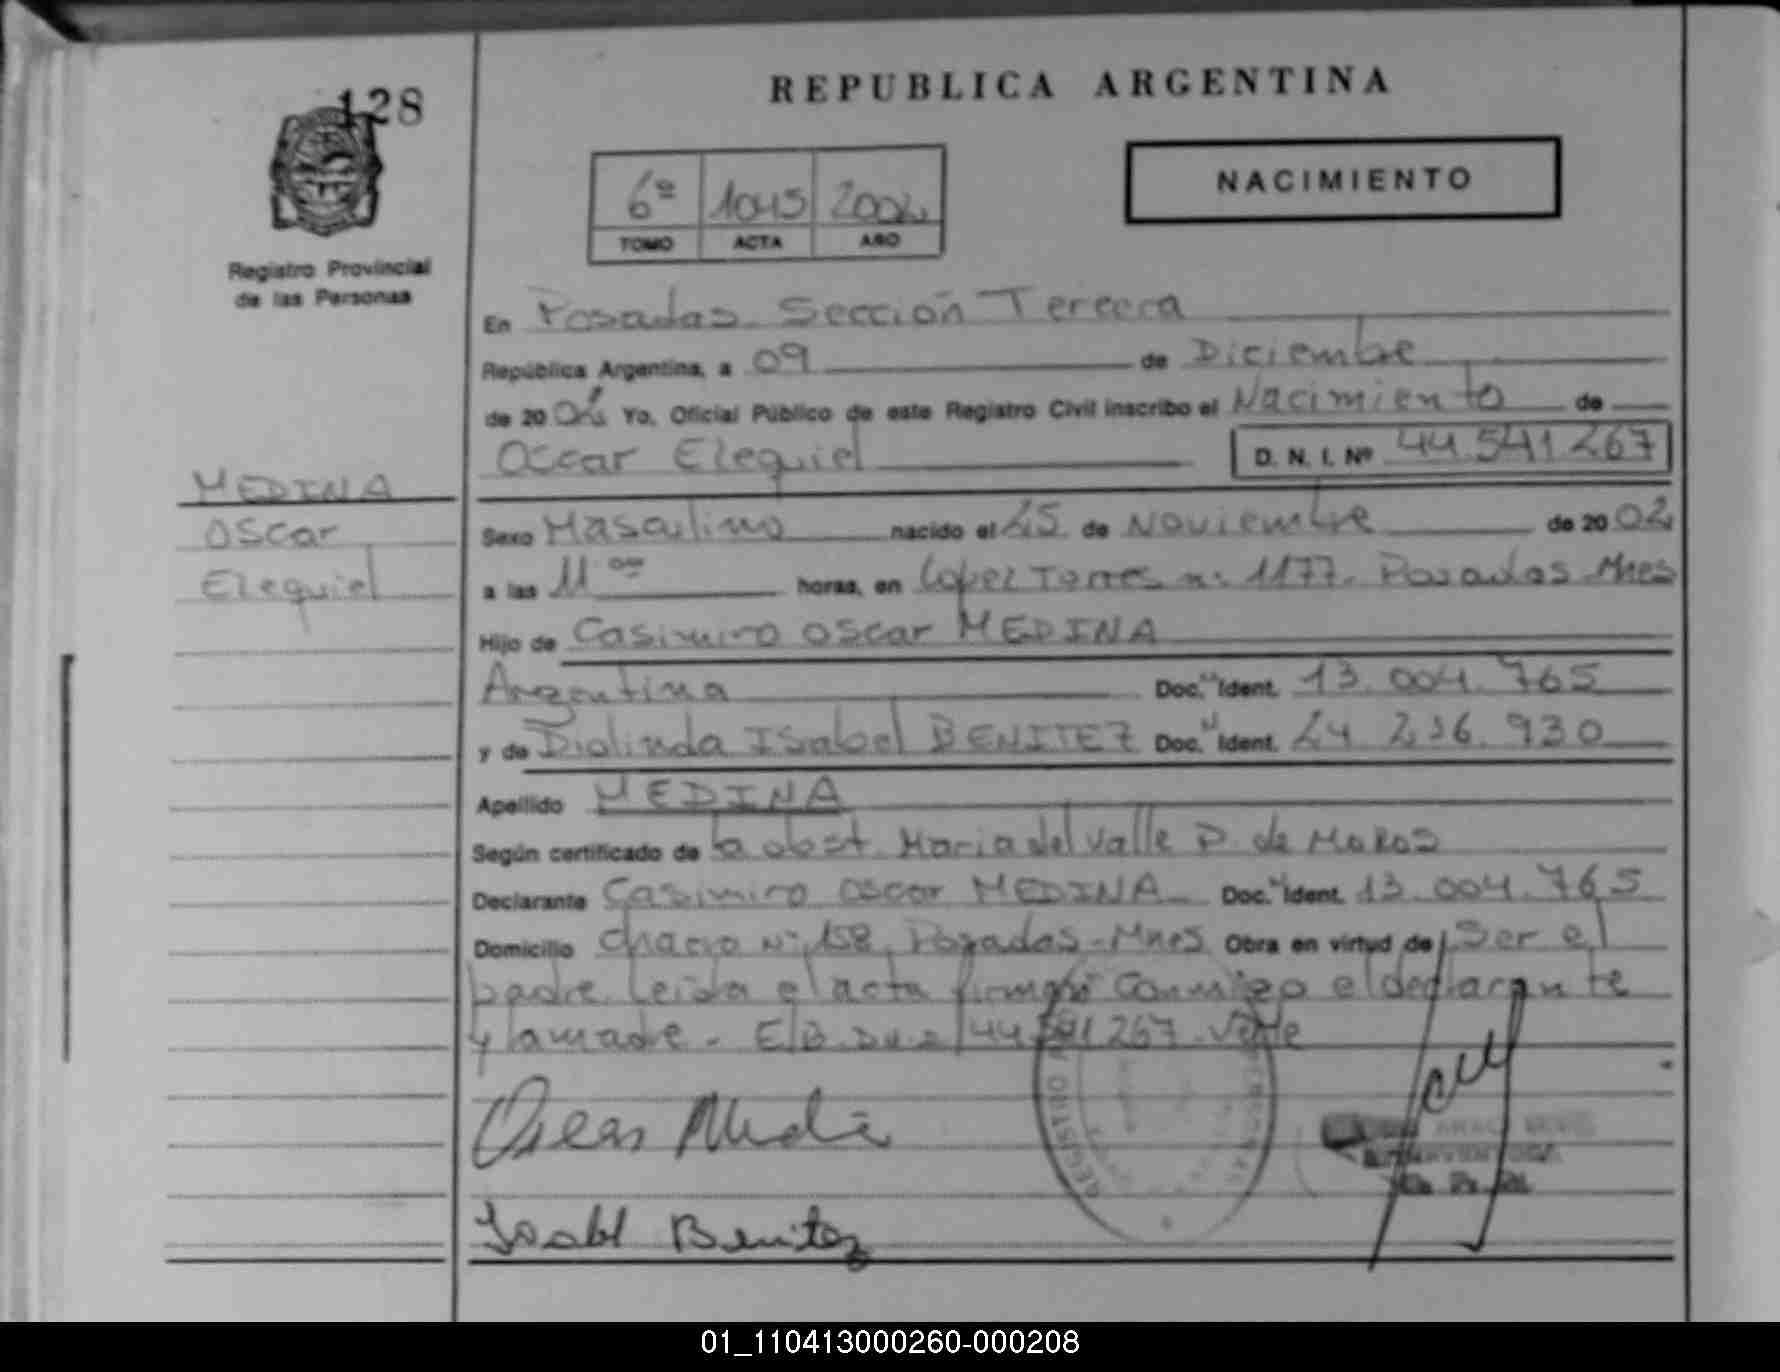 128
REPUBLICA ARGENTINA
NACIMIENTO
6º 1045 2002
TOMO ACTA AÑO
Registro Provincial
de las Personas
En Posadas Sección Tercera
República Argentina, a 09 de Diciembre
de 20 Yo, Oficial Público de este Registro Civil inscribo el Nacimiento de
Oscar Ezequiel D. N. I. Nº 44.541.267
MEDINA
Oscar
Ezequiel
Sexo Masculino nacido el 25 de Noviembre de 2002
a las 11 horas, en Lopez Torres n: 1177. Posadas Mnes
Hijo de Casimiro Oscar MEDINA
Argentina Doc. Ident. 13.004.765
y de Diolinda Isabel BENITEZ Doc. Ident. 24.236.930
Apellido MEDINA
Según certificado de la obst. Maria del Valle P. de
Declarante Casimiro Oscar MEDINA Doc. Ident. 13.004.765
Domicilio Chacra Nº 158, Posadas-Mnes Obra en virtud de Ser el
padre. Leida el acta firman conmigo el declarante
y la madre. 44.541.267. Vale
Oscar Medina
Isabel Benitez
REGISTRO
01_110413000260-000208